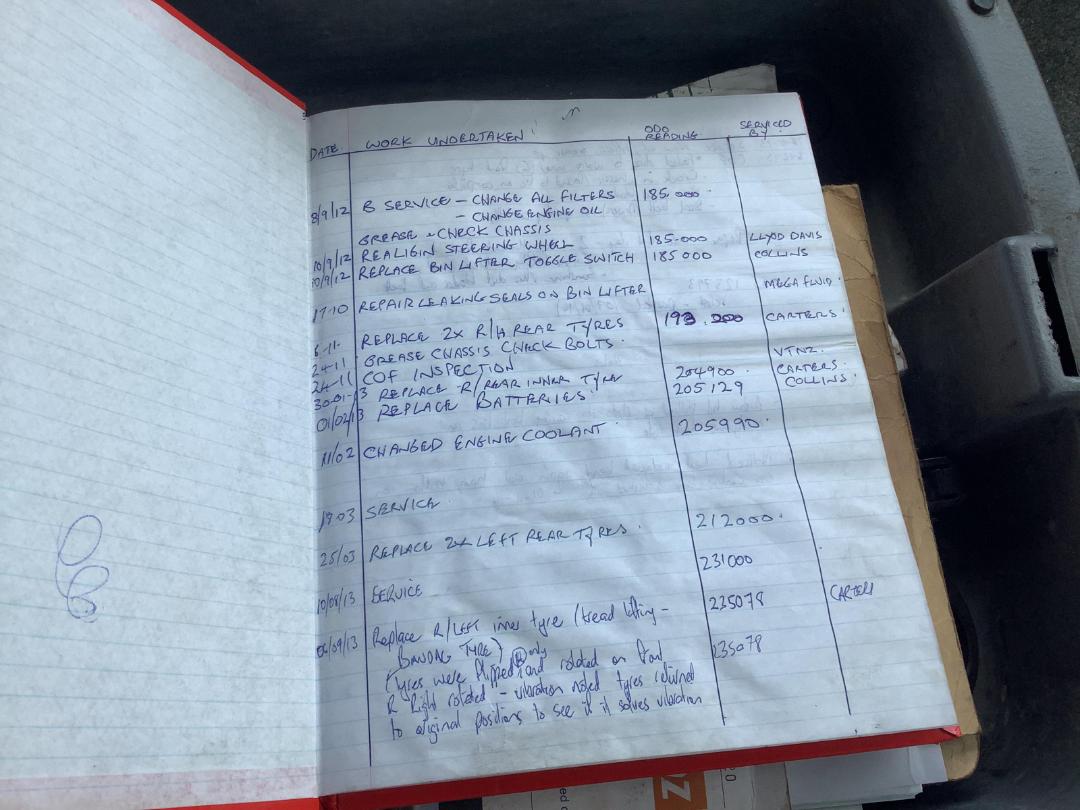 DATE. WORK UNDERTAKEN ODO READING SERVICED BY
8/9/12 B SERVICE - CHANGE ALL FILTERS 185.000
- CHANGE ENGINE OIL
GREASE + CHECK CHASSIS
10/9/12 REALIGIN STEERING WHEEL 185-000 LLYOD DAVIS
10/9/12 REPLACE BIN LIFTER TOGGLE SWITCH 185000 COLLINS
17-10 REPAIR LEAKING SEALS ON BIN LIFTER MEGA FLUID
6-11- REPLACE 2x R/H REAR TYRES 193.200 CARTERS
24-11 GREASE CHASSIS CHECK BOLTS.
24-11 COF INSPECTION VTNZ.
30-01-13 REPLACE R/REAR INNER TYRE 204900. CARTERS.
01/02/13 REPLACE BATTERIES 205129 COLLINS
11/02 CHANGED ENGINE COOLANT 205990.
19.03 SERVICE
25/03 REPLACE 2x LEFT REAR TYRES. 212000.
231000
10/08/13 SERVICE
06/09/13 Replace R/LEFT inner tyre (tread lifting - 235078 CARTERS
BANDAG TYRE)
(Tyres were flipped only and rotated on front 235078
R Right rotated - vibration noted tyres returned
to original positions to see if it solves vibration
Z
2.0
ed c